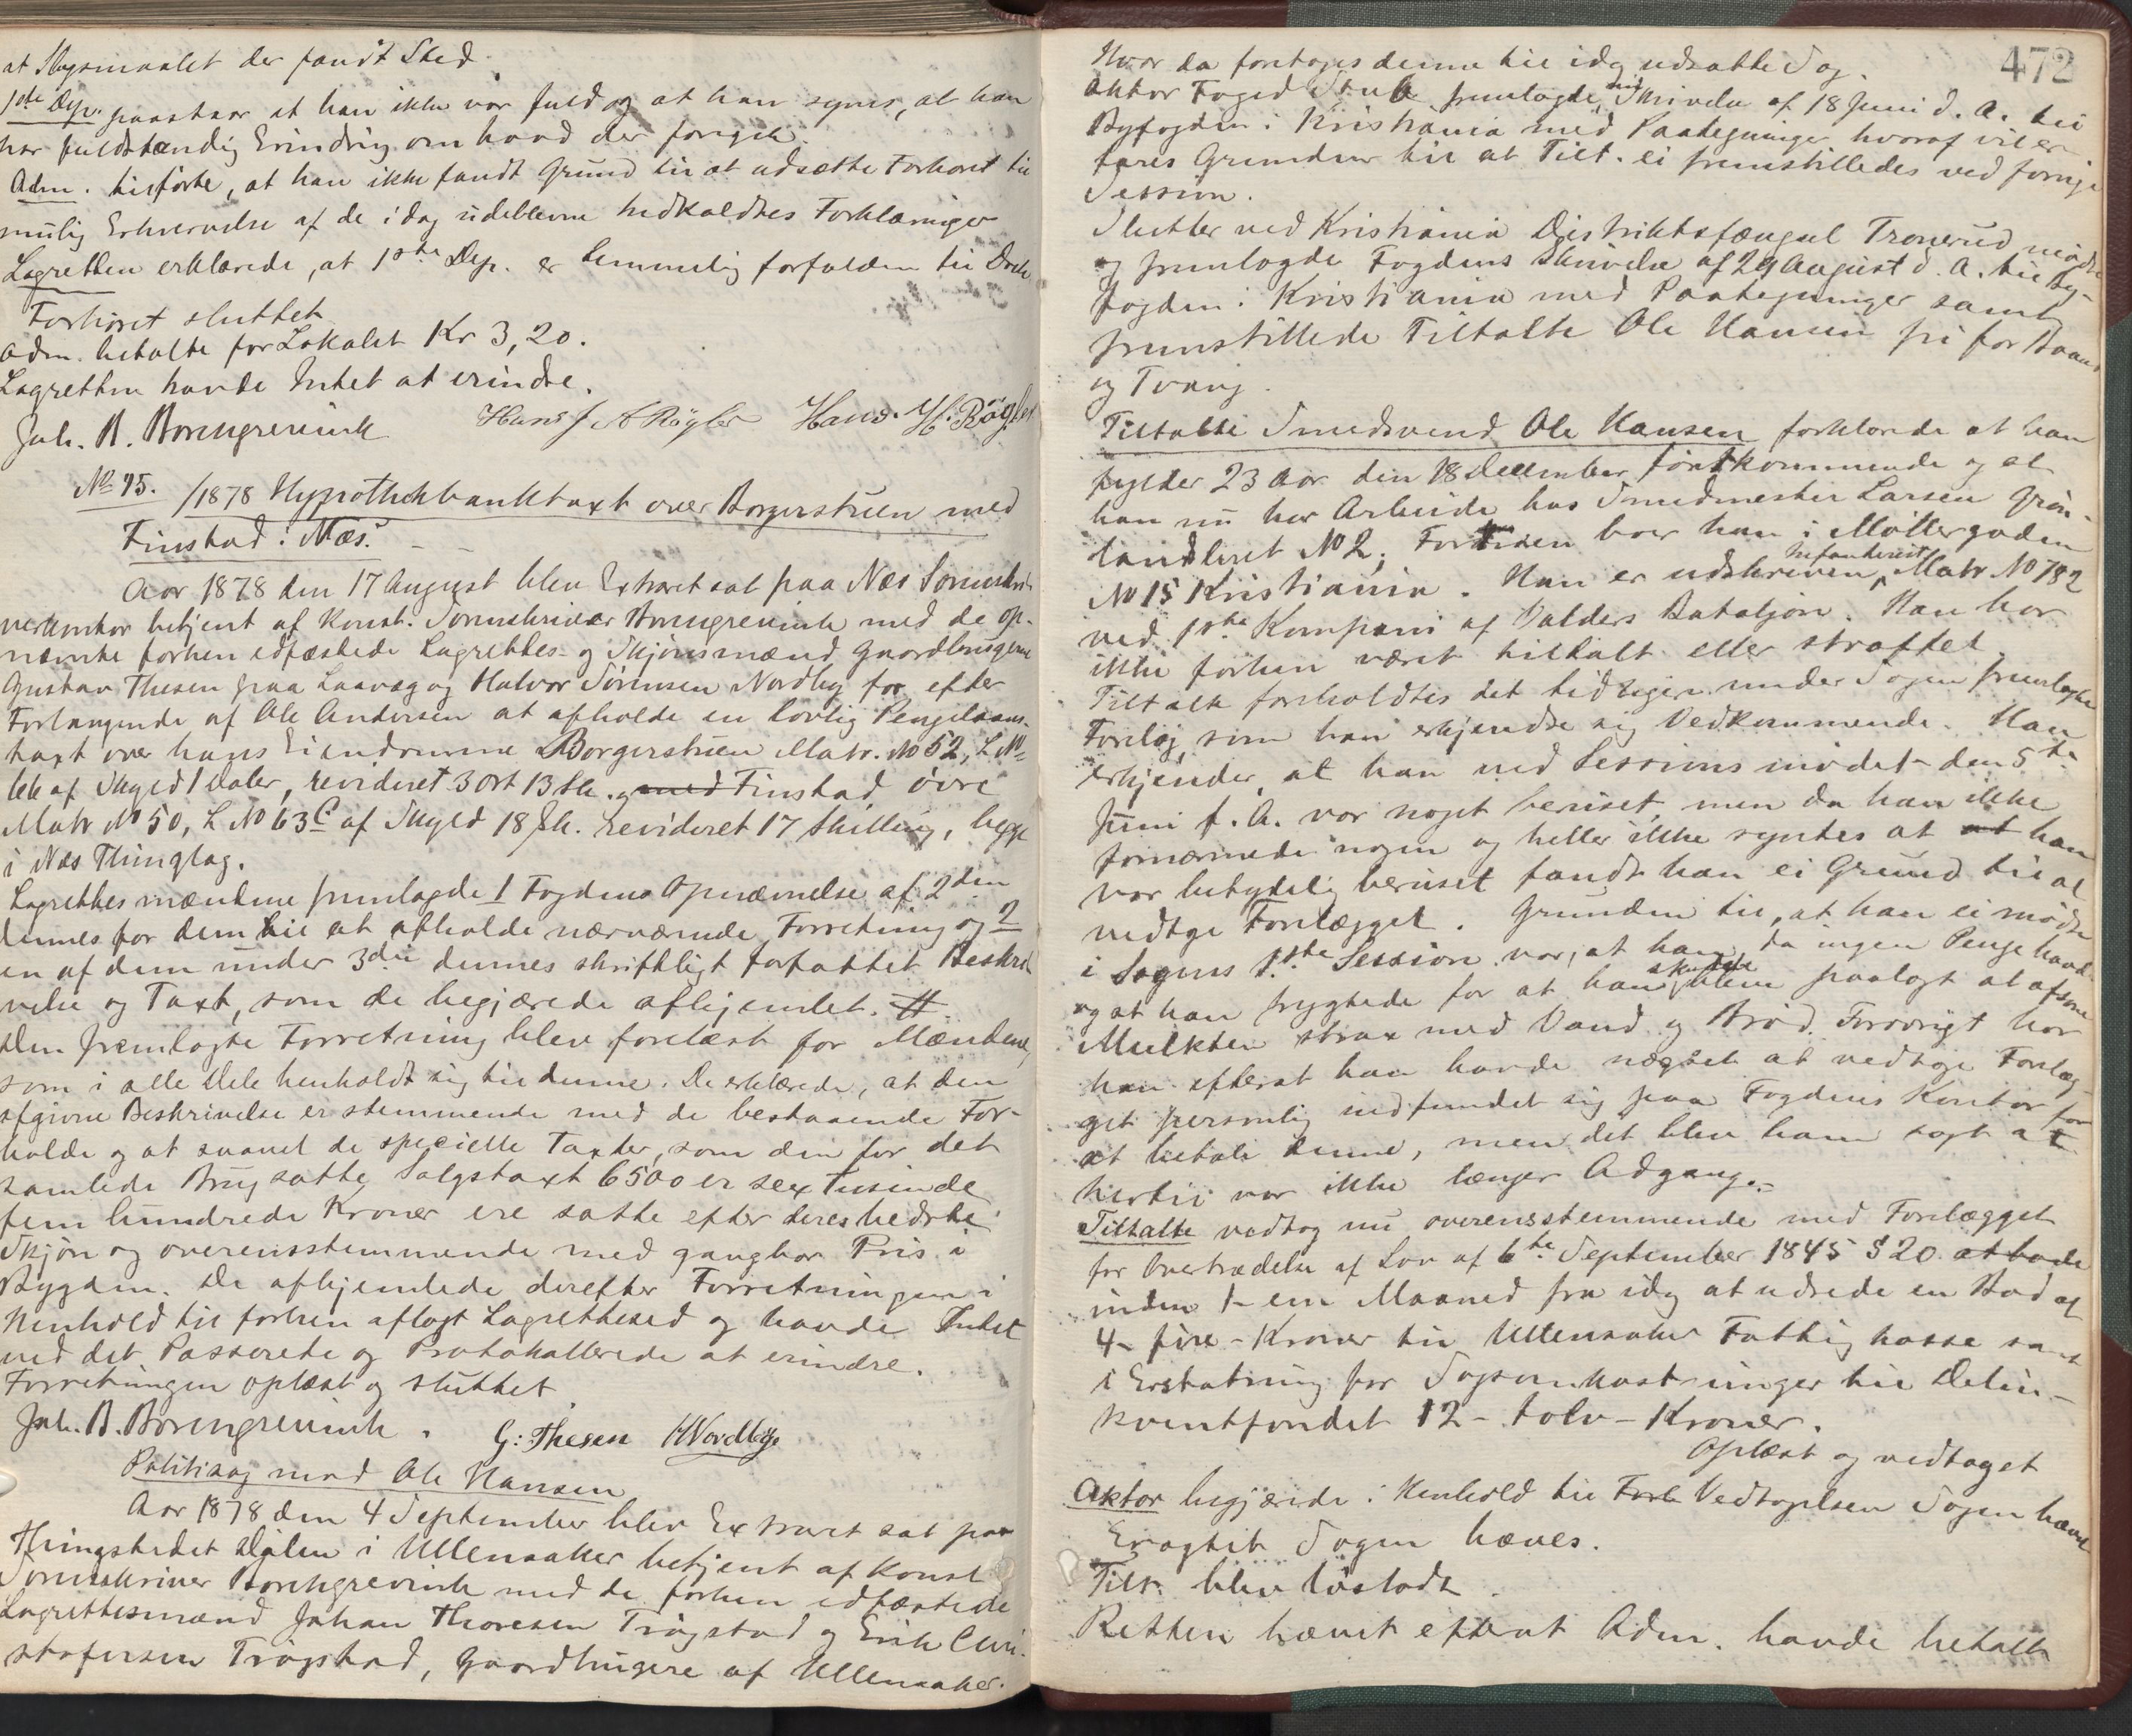 at Slagsmaalet der fandt Sted.
1ste Dep. paastaar at han ikke var fuld og at han synes, at han
har fuldstændig Erindring om hvad der foregik.
Adm. tilførte, at han ikke fandt Grund til at udsætte Forhøret til
mulig Erhvervelse af de idag udeblevne Indkaldtes Forklaringer
Lagretten erklærede, at 1ste Dep. er temmelig forfalden til Drik
Forhøret sluttet
Adm. betalte for Lokalet Kr 3,20.
Lagretten havde Intet at erindre.
Joh. B. Borengrevink Hans J A Rögler Hans H. Rögler
No 95. /1878 Hypothekbanktaxt over Borgerstuen med
Finstad i Næs.
Aar 1878 den 17 August blev Extraret sat paa Næs Sorenskri-
verkontor betjent af Konst. Sorenskriver Borengrevink med de op-
nævnte forhen edfæstede Lagrettes- og Skjønsmænd Gaardbrugerne
Gustav Thesen paa Laaveg og Halvor Sörensen Nordby for efter
Forlangende af Ole Andersen at afholde en lovlig Pengelaans-
taxt over hans Eiendomme Borgerstuen Matr. No 52, L No
66 af Skyld 1 Daler, revideret 3 Ort 13 sk. og med Finstad övre
Matr No 50, L No 63 c af Skyld 18 sk. revideret 17 Skilling, begge
i Næs Thinglag.
Lagrettesmændene fremlagde 1 Fogdens Opnævnelse af 2den
dennes for dem til at afholde nærværende Forretning og 2
en af dem under 3die dennes skriftligt forfattet Beskri
velse og Taxt, som de begjærede afhjemlet. #
Den fremlagte Forretning blev forelæst for Mændene,
som i alle Dele henholdt sig til denne. De erklærede, at den
afgivne Beskrivelse er stemmende med de bestaaende For-
holde og at saavel de specielle Taxter, som den for det
samlede Brug satte Salgstaxt 6500 er sex Tusinde
fem hundrede Kroner ere satte efter deres bedste
Skjøn og overensstemmende med gangbar Pris i
Bygden. De afhjemlede derefter Forretningen i
Henhold til forhen aflagt Lagretteed og havde Intet
ved det Passerede og Protokollerede at erindre.
Forretningen oplæst og sluttet
Joh. B. Borengrevink. G: Thesen HNordbye
Politisag mod Ole Hansen
Aar 1878 den 4 September blev Extraret sat paa
Thingstedet Dølen i Ullensaker betjent af Konst
Sorenskriver Borchgrevink med de forhen edfæstede
Lagrettesmænd Johan Thoresen Trögstad og Erik Chri-
stofersen Trögstad, Gaardbrugere af Ullensaker.
472
Hvor da foretages denne til idag udsatte Sag.
Aktor Foged Stub fremlagde sin Skrivelse af 18 Juni d. A. til
Byfogden i Kristiania med Paategninger hvoraf vil er-
fares Grunden til at Tilt. ei fremstilledes ved forrige
Session.
Slutter ved Kristiania Distriktsfængsel Tronerud mødte
og fremlagde Fogdens Skrivelse af 29 August d. A. til By-
fogden i Kristiania med Paategninger samt
fremstillede Tiltalte Ole Hansen fri for Baand
og Tvang.
Tiltalte Smedsvend Ole Hansen forklarede at han
fylder 23 Aar den 18 December førstkommende og at
han nu har Arbeide hos Smedmester Larsen Grön-
landsleret No 2. Fortiden boer han i Møllergaden
No 15 Kristiania. Han er udskreven Infanterist, Matr No 782
ved 1ste Kompani af Valders Bataljon. Han har
ikke forhen været tiltalt eller straffet.
Tiltalte foreholdtes det tidligere under Sagen fremlagte
Forelæg, som han erkjendte sig Vedkommende. Han
erkjender, at han ved Sessionsmødet den 5te
Juni f. A. var noget beruset, men da han ikke
fornærmede nogen og heller ikke syntes at at han
var betydelig beruset fandt han ei Grund til at
vedtage Forelægget. Grunden til, at han ei mødte
i Sagens 1ste Session var, at han da ingen Penge havde
og at han frygtede for at han skulde blive paalagt at afsone
Mulkten strax med Vand og Brød. Forøvrigt har
han efterat han havde nægtet at vedtage Forelæg-
get personlig indfundet sig paa Fogdens Kontor for
at betale denne, men det blev ham sagt at
hertil var ikke længer Adgang.
Tiltalte vedtog nu overensstemmende med Forelægget
for Overtrædelse af Lov af 6te September 1845 § 20 at bøde
inden 1- en Maaned fra idag at udrede en Bod af
4- fire - Kroner til Ullensaker Fattigkasse samt
i Erstatning for Sagsomkostninger til Delin-
kventfondet 12 - tolv - Kroner.
Oplæst og vedtaget
Aktor begjærede i Henhold til Forl Vedtagelsen Sagen hævet
Eragtet Sagen hæves.
Tilt. blev løsladt.
Retten hævet efterat Adm. havde betalt